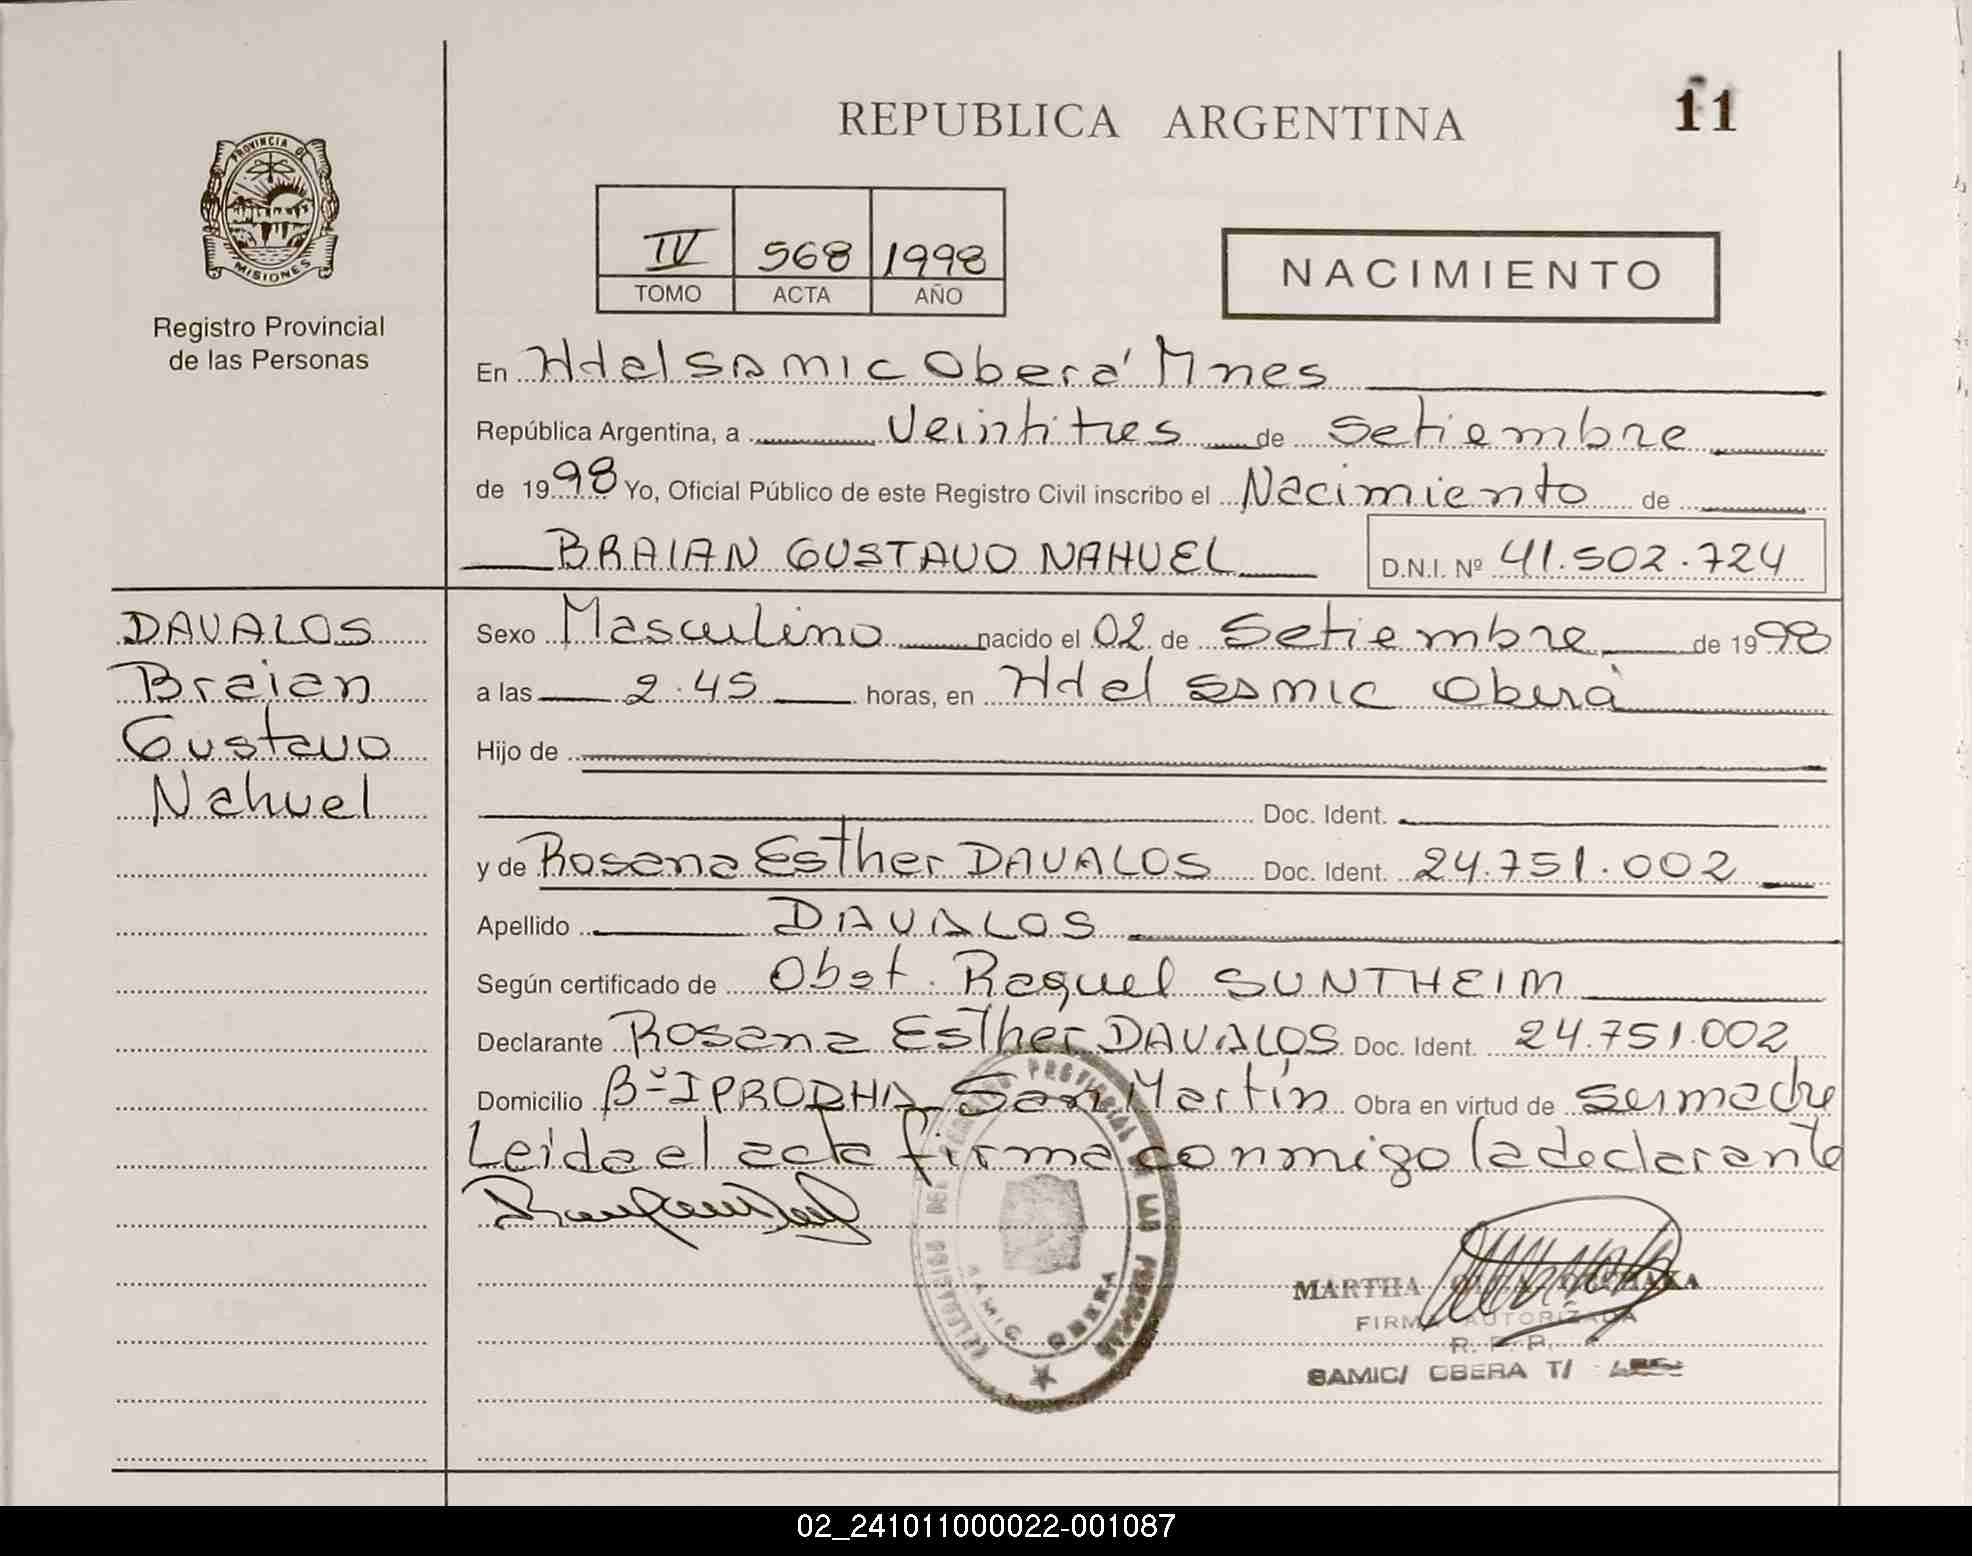 REPUBLICA ARGENTINA
11
PROVINCIA DE
MISIONES
Registro Provincial
de las Personas
IV 568 1998
TOMO ACTA AÑO
NACIMIENTO
En Hdel SAMIC Oberá Mnes
República Argentina, a Veintitres de Setiembre
de 1998 Yo, Oficial Público de este Registro Civil inscribo el Nacimiento de
BRAIAN GUSTAVO NAHUEL D.N.I. Nº 41.502.724
DAVALOS
Braian
Gustavo
Nahuel
Sexo Masculino nacido el 02 de Setiembre de 1998
a las 2.45 horas, en Hdel SAMIC Oberá
Hijo de
Doc. Ident.
y de Rosana Esther DAVALOS Doc. Ident. 24.751.002
Apellido DAVALOS
Según certificado de Obst. Raquel SUNTHEIM
Declarante Rosana Esther DAVALOS Doc. Ident. 24.751.002
Domicilio Bº IPRODHA San Martín Obra en virtud de ser madre
Leida el acta firma conmigo la declarante
PROVINCIAL DE LAS PERSONAS
SAMIC OBERA
MARTHA
FIRMA AUTORIZADA
R. P. P.
SAMIC/ OBERA T/
02_241011000022-001087